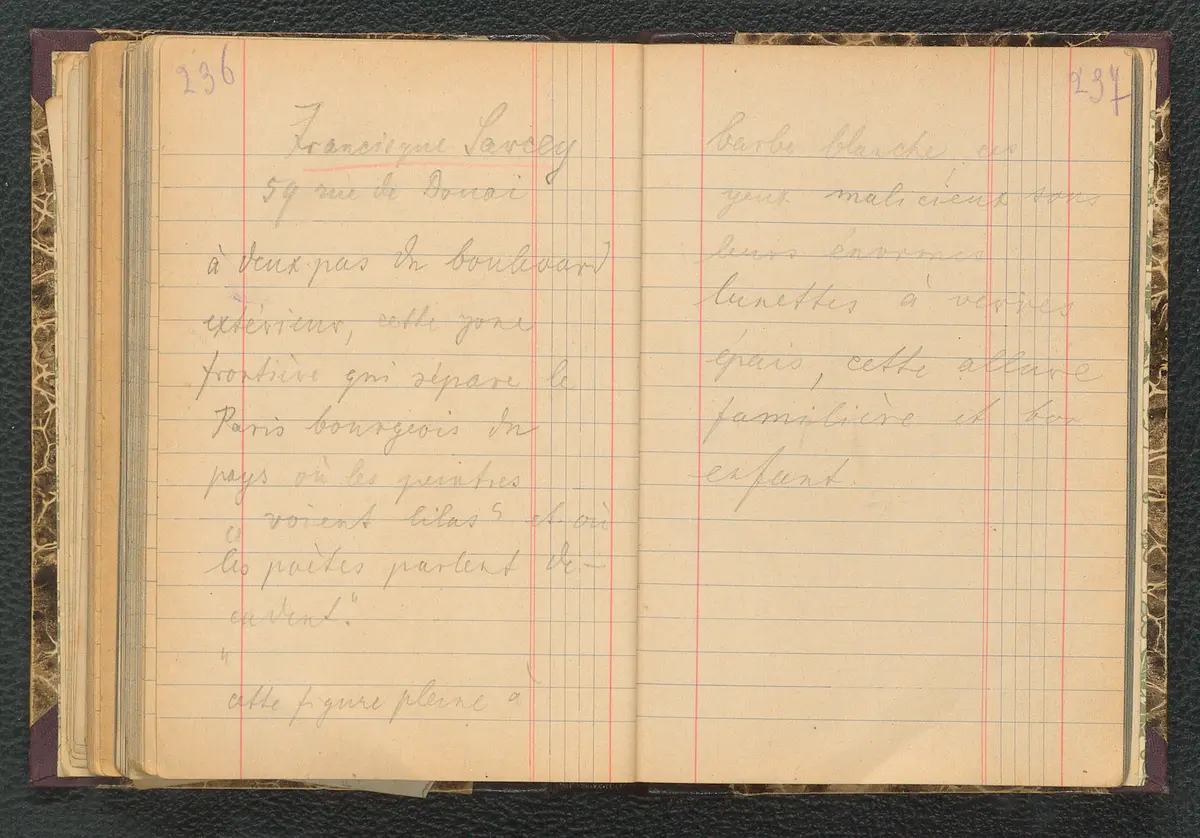 236
Francisque Sarcey
59 rue de Douai
à deux pas du boulevard
extérieur, cette zone
frontière qui sépare le
Paris bourgeois du
pays où les peintres
„ voient lilas" et où
les poètes parlent dé-
cadent."
"
cette figure pleine à
237
barbe blanche, ces
yeux malicieux sous
leurs énormes
lunettes à verres
épais, cette allure
familière et bon
enfant.